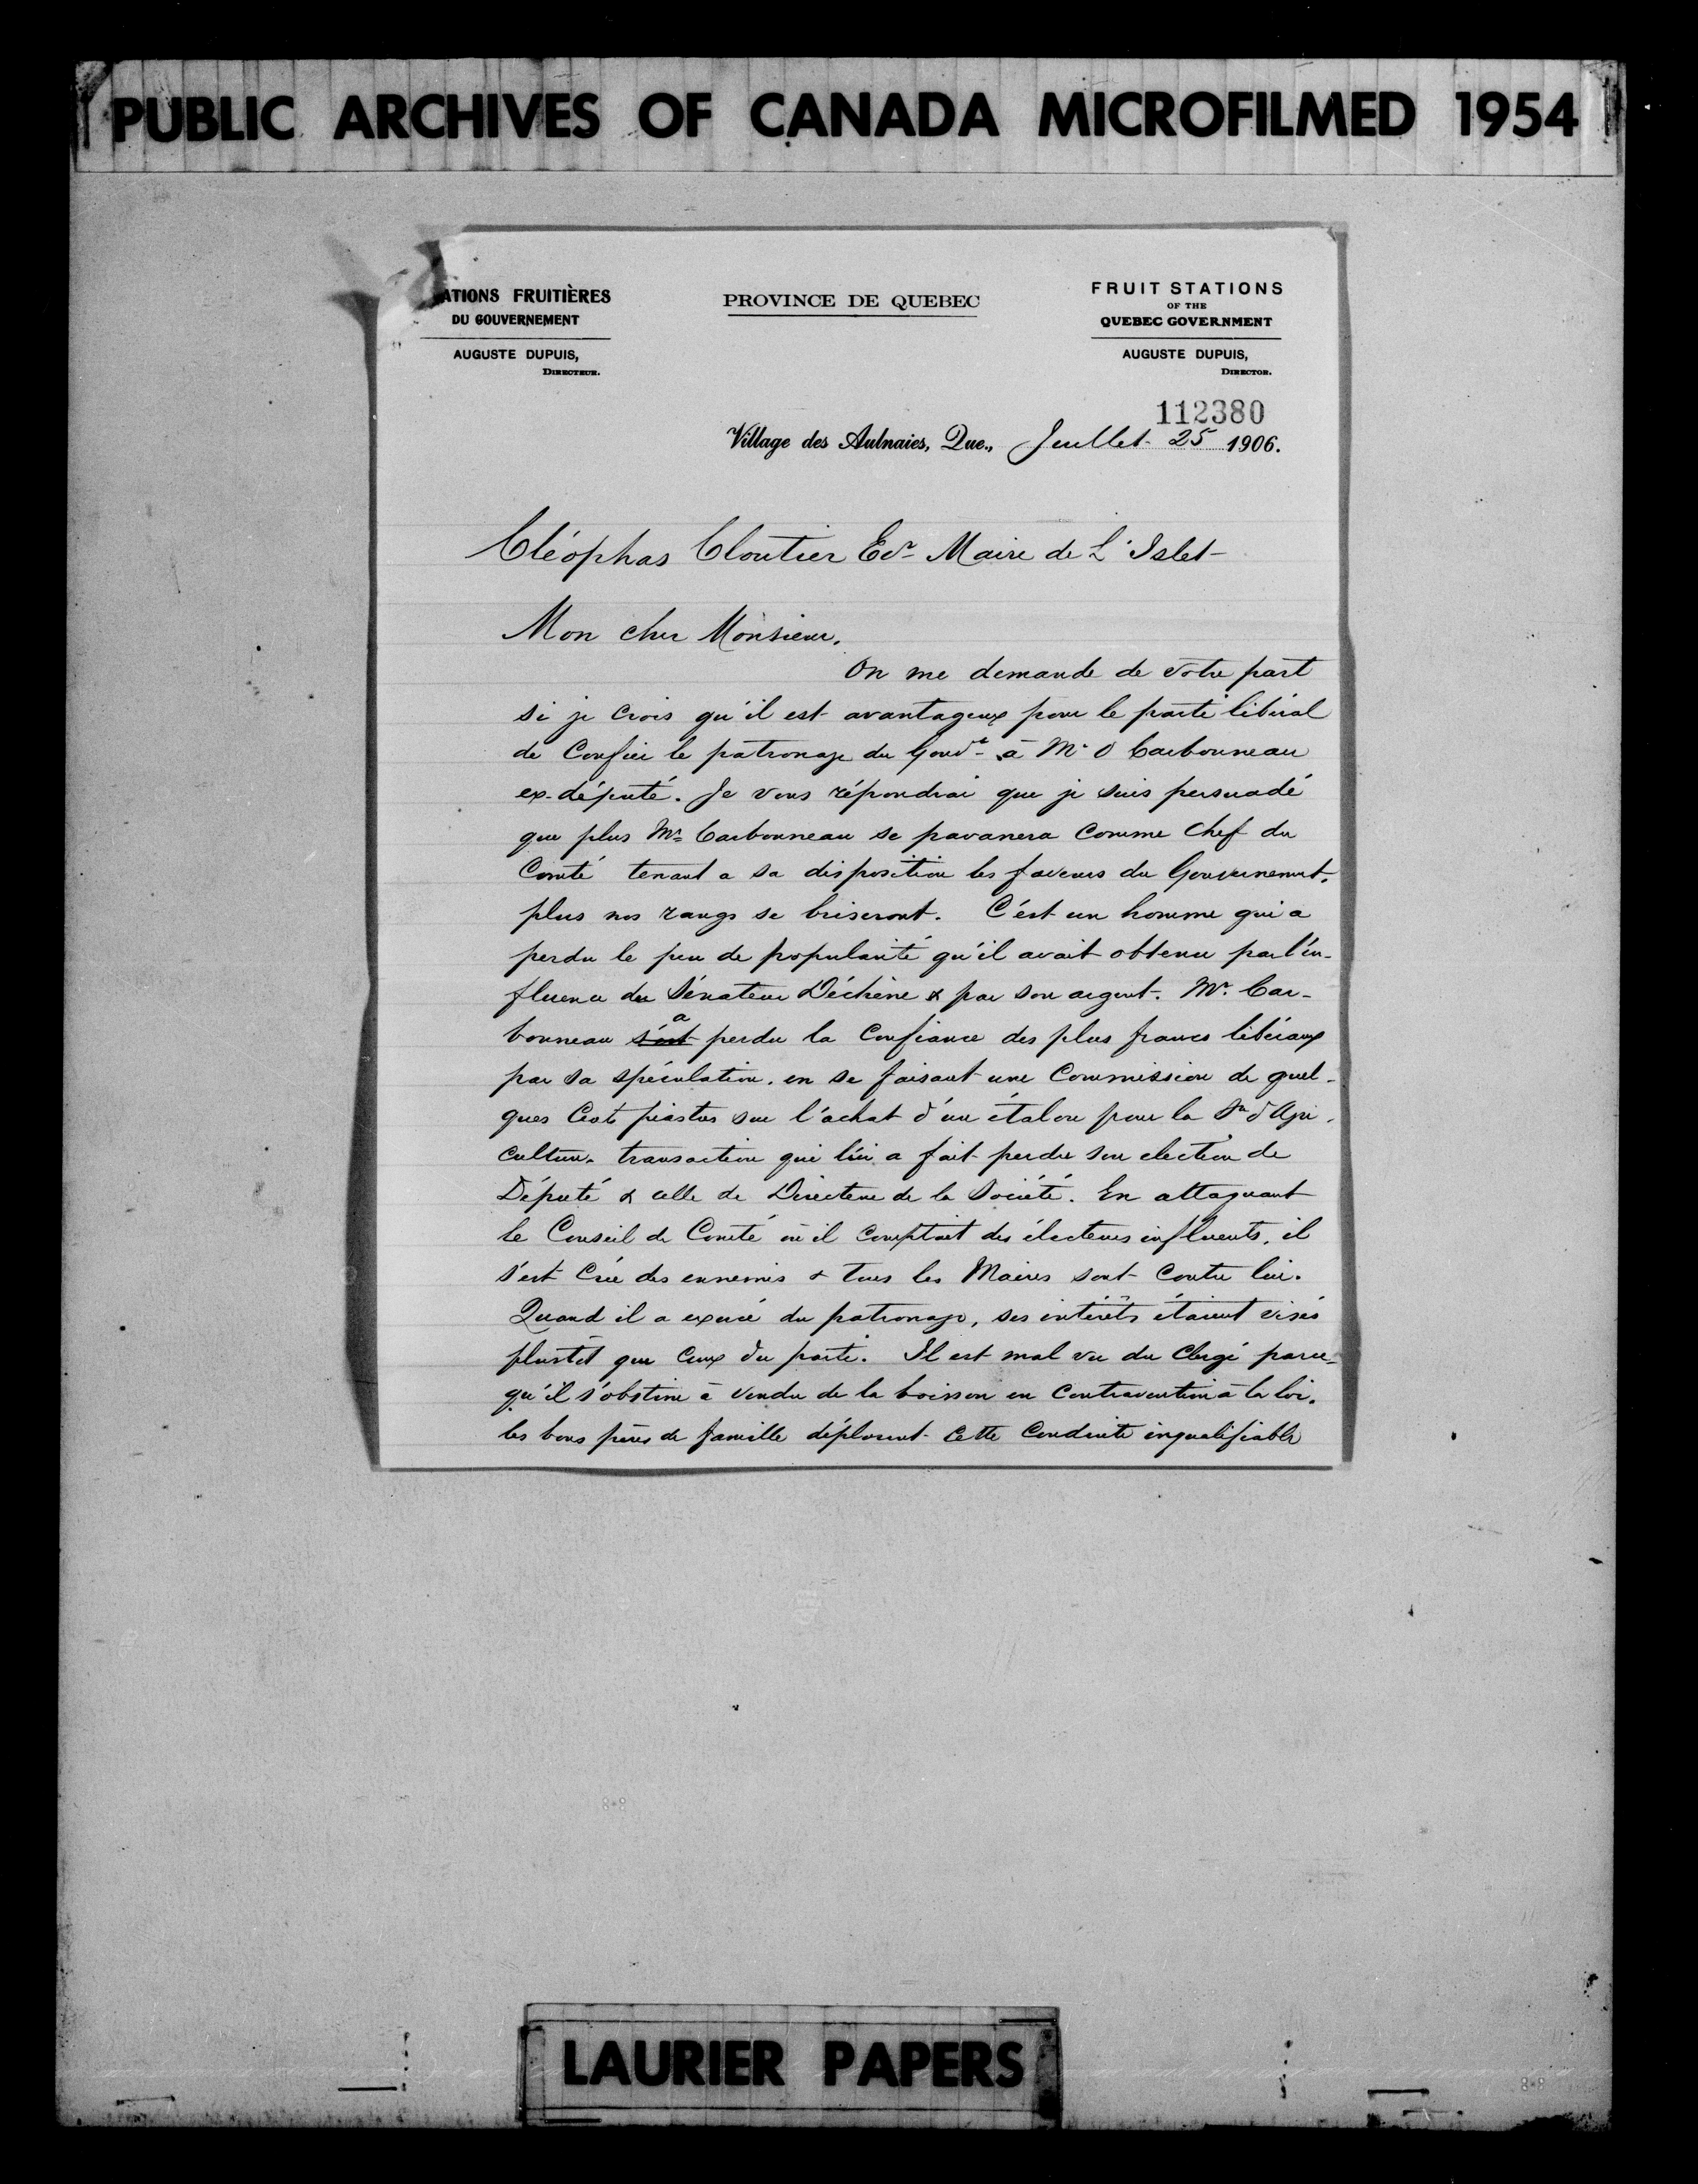 PUBLIC ARCHIVES OF CANADA MICROFILMED 1954
ATIONS FRUITIÈRES
DU GOUVERNEMENT
AUGUSTE DUPUIS,
DIRECTEUR.
PROVINCE DE QUEBEC
FRUIT STATIONS
OF THE
QUEBEC GOVERNMENT
AUGUSTE DUPUIS,
DIRECTOR.
112380
Village des Aulnaies, Que., Juillet 25 1906.
Cléophas Cloutier Ecr Maire de L'Islet
Mon cher Monsieur,
On me demande de votre part
si je crois qu'il est avantageux pour le parti libéral
de Confier le patronage du Gouvt à Mr O Carbonneau
ex-député. Je vous répondrai que je suis persuadé
que plus Mr Carbonneau se pavanera comme Chef du
Comté tenant a sa disposition les faveurs du Gouvernement,
plus nos rangs se briseront. C'est un homme qui a
perdu le peu de popularité qu'il avait obtenu par l'in-
fluence du Sénateur Déchène & par son argent. Mr. Car-
bonneau s'est a perdu la Confiance des plus francs libéraux
par sa spéculation, en se faisant une Commission de quel-
ques Cents piastres sur l'achat d'un étalon pour la Sté d'Agri-
culture, transaction qui lui a fait perdre son election de
Député & celle de Directeur de la Société. En attaquant
le Conseil de Comté où il comptait des électeurs influents, il
s'est Créé des ennemis & tous les Maires sont Contre lui.
Quand il a exercé du patronage, ses intérêts étaient visés
plustôt que Ceux du parti. Il est mal vu du Clergé parce-
qu'il s'obstine à vendre de la boisson en Contravention à la loi.
les bons pères de famille déplorent Cette Conduite inqualifiable
LAURIER PAPERS